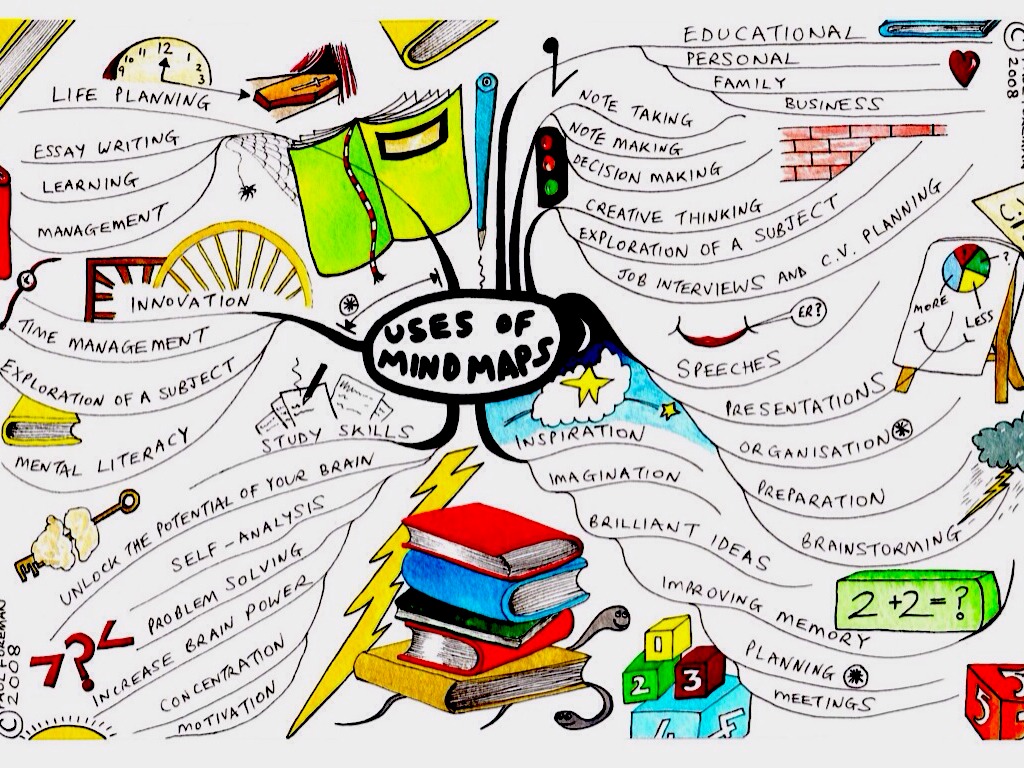 USES OF
MIND MAPS
EDUCATIONAL
PERSONAL
FAMILY
BUSINESS
NOTE TAKING
NOTE MAKING
DECISION MAKING
CREATIVE THINKING
EXPLORATION OF A SUBJECT
JOB INTERVIEWS AND C.V. PLANNING
ER?
SPEECHES
PRESENTATIONS
ORGANISATION
PREPARATION
BRAINSTORMING
MORE
LESS
?
C.V.
2+2=?
INSPIRATION
IMAGINATION
BRILLIANT IDEAS
IMPROVING MEMORY
PLANNING
MEETINGS
1
2
3
4
5
5
STUDY SKILLS
UNLOCK THE POTENTIAL OF YOUR BRAIN
SELF-ANALYSIS
PROBLEM SOLVING
INCREASE BRAIN POWER
CONCENTRATION
MOTIVATION
?
INNOVATION
TIME MANAGEMENT
EXPLORATION OF A SUBJECT
MENTAL LITERACY
LIFE PLANNING
ESSAY WRITING
LEARNING
MANAGEMENT
9
11
12
1
2
3
© PAUL FOREMAN
2008
©
2008